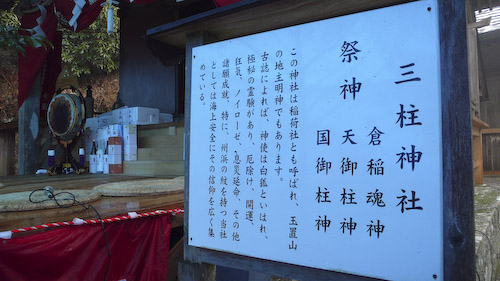 三柱神社
祭神 倉稲魂神
天御柱神
国御柱神
この神社は稲荷社とも呼ばれ、玉置山
の地主明神でもあります。
古誌によれば、神使は白狐といはれ、
極秘の霊験があり、厄除け、開運、
狂気、ノイローゼ、息災延命、その他
諸願成就、特に、州浜の紋を持つ当社
としては海上安全にその信仰を広く集
めている。